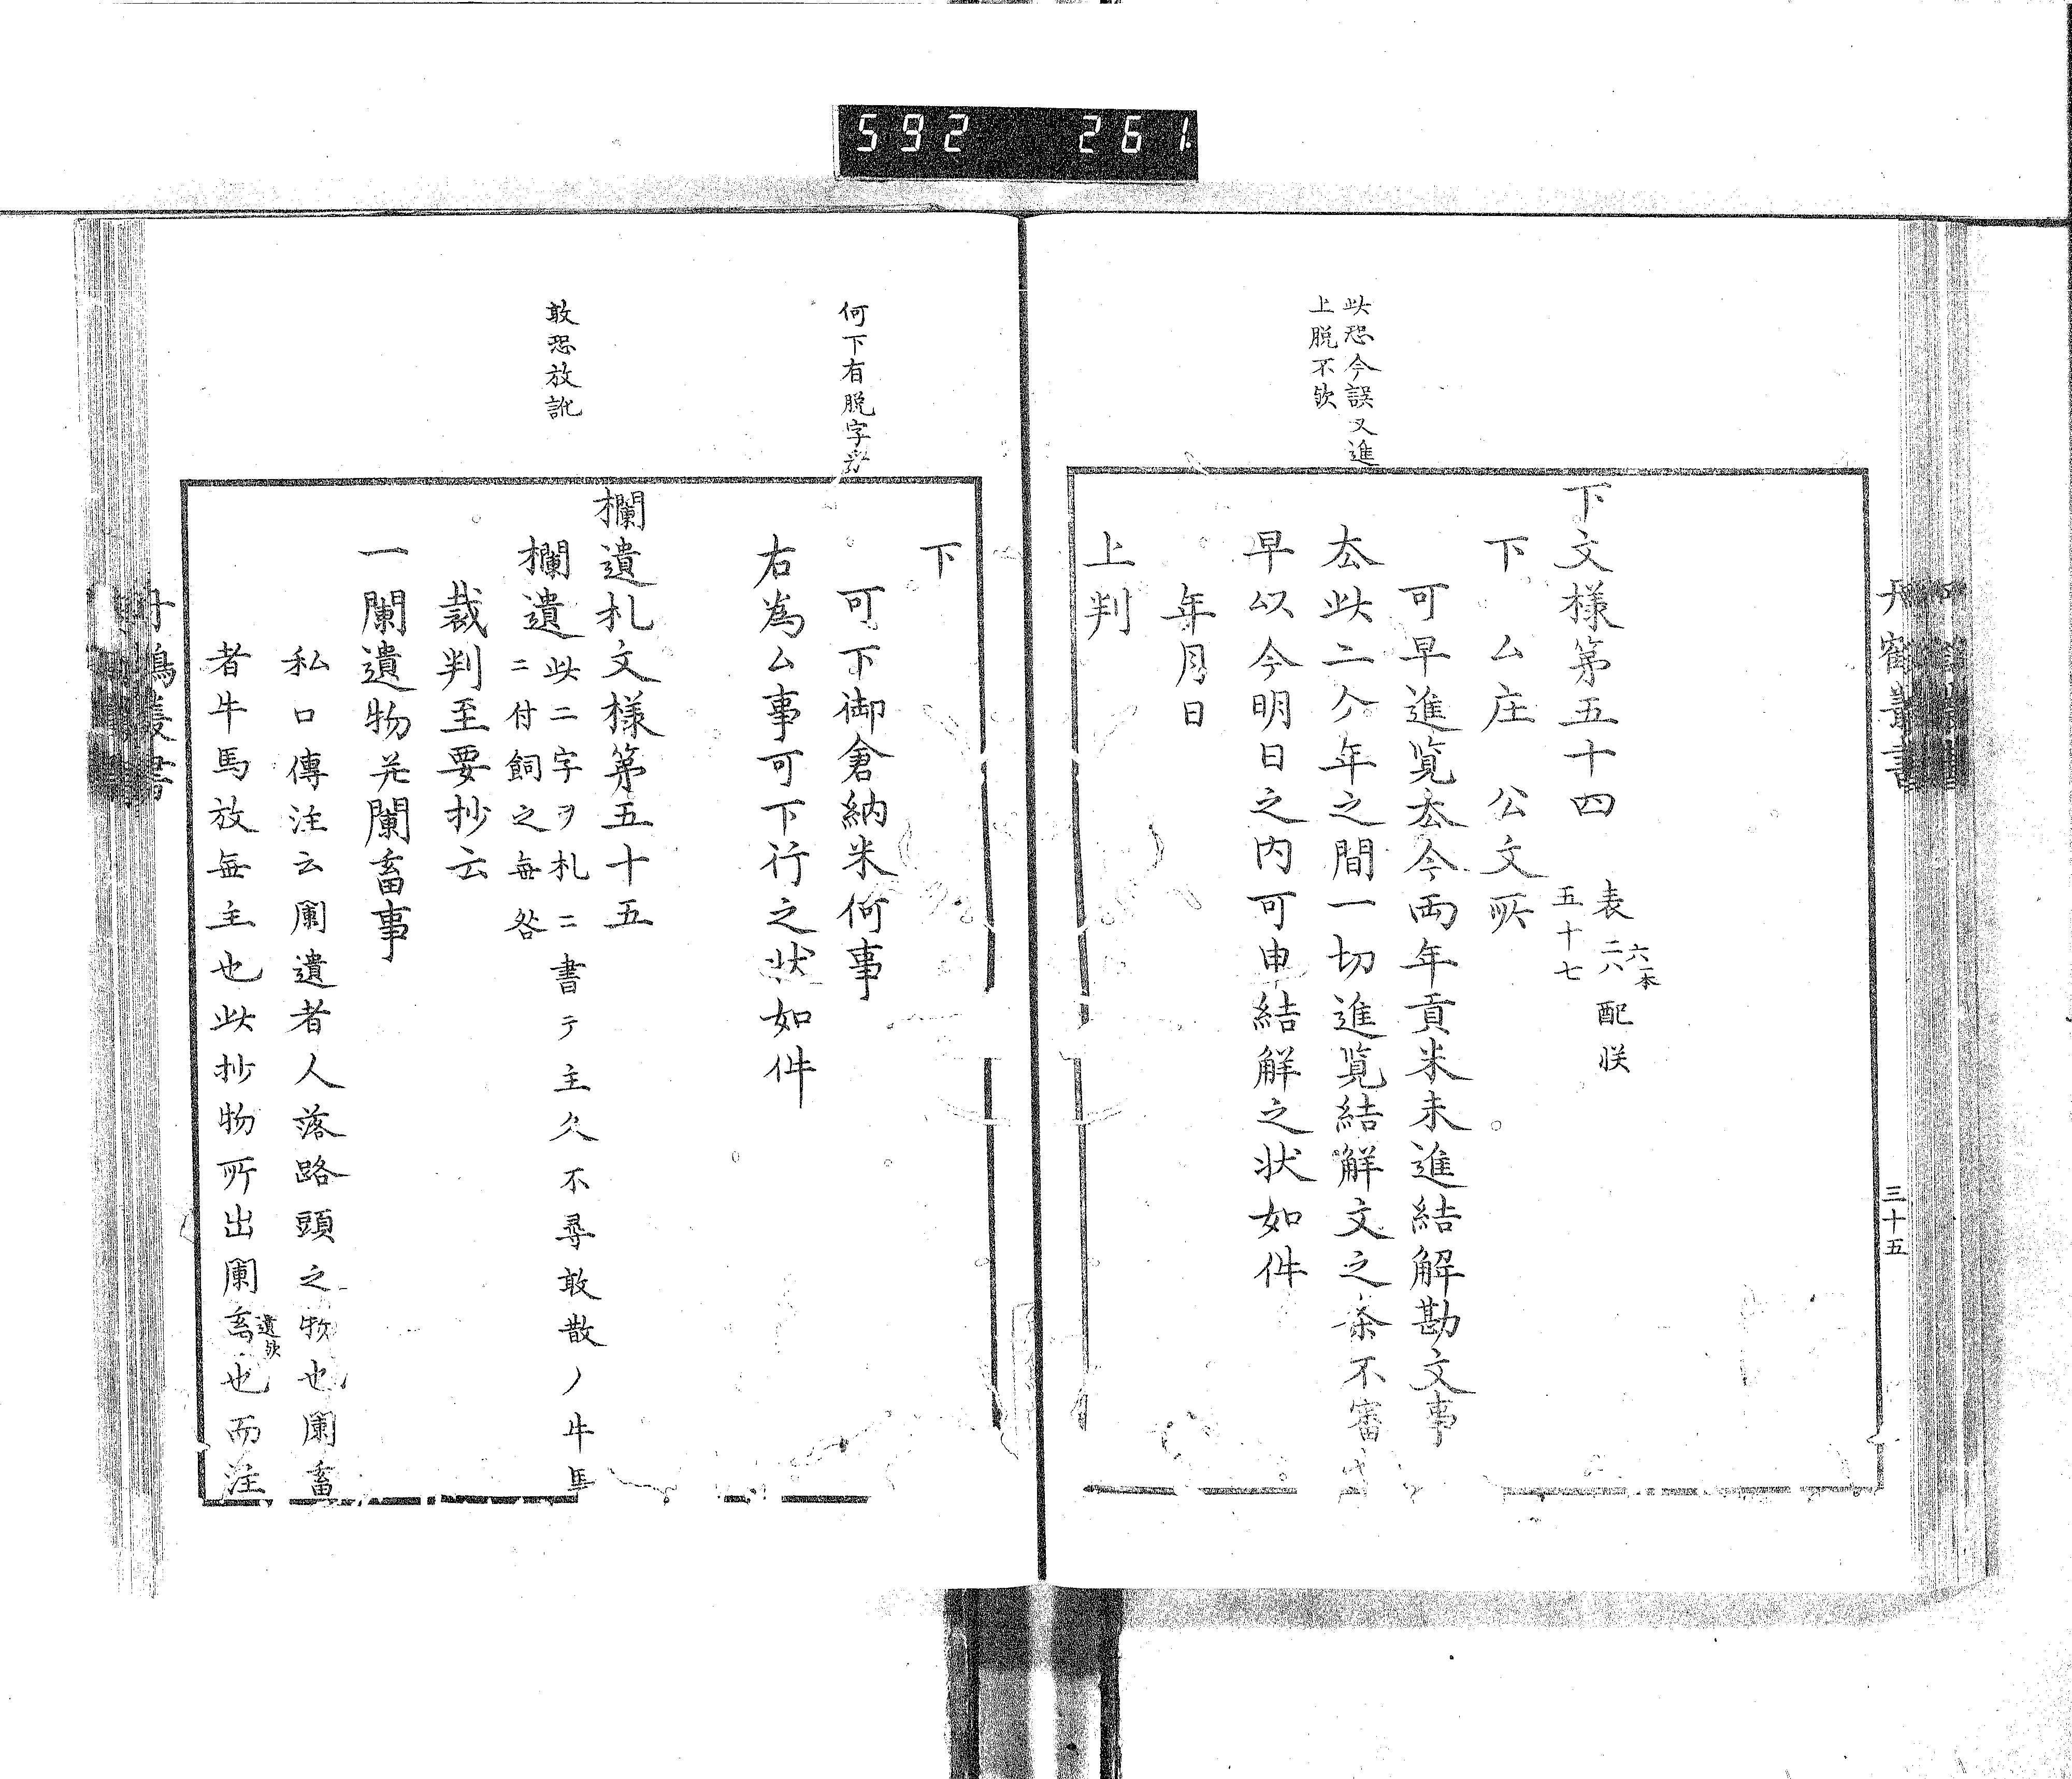 592 261
此恐今誤又進
上脱不欤
下文様第五十四
表二八配㳄
六一本
五十七
下 厶庄 公文所
可早進覧厺今両年貢米未進結解勘文事
厺此二个年之間一切進覧結解文之条不審
早以今明日之内可申結解之状如件
年月日
上判
丹鶴叢書
三十五
何下有脱字
敢恐放訛
下
可下御倉納米何事
右為厶事可下行之状如件
欄遺札文様第五十五
欄遺此二字ヲ札ニ書テ主久不尋敢散ノ牛馬
ニ付飼之毎咎
裁判至要抄云
一闌遺物并闌畜事
私口傳注云闌遺者人落路頭之物也闌畜
者牛馬放毎主也此抄物所出闌畜也而注
遺欤
丹鶴叢書